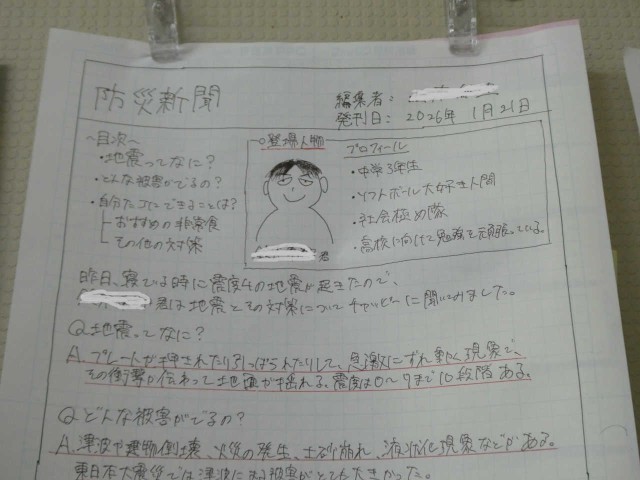 防災新聞
編集者:
発刊日: 2026年 1月21日
~目次~
・地震ってなに?
・どんな被害がでるの?
・自分たちにできることは?
おすすめの非常食
その他の対策
○登場人物
君
プロフィール
・中学3年生
・ソフトボール大好き人間
・社会極め隊
・高校に向けて勉強を頑張っている。
昨日、寝ている時に震度4の地震が起きたので、
君は地震とその対策についてチャッピーに聞いてみました。
Q.地震ってなに?
A.プレートが押されたり引っぱられたりして、急激にずれ動く現象で、
その衝撃が伝わって地面が揺れる。震度は0~9まで10段階ある。
Q.どんな被害がでるの?
A.津波や建物倒壊、火災の発生、土砂崩れ、液状化現象などがある。
東日本大震災では津波による被害がとても大きかった。